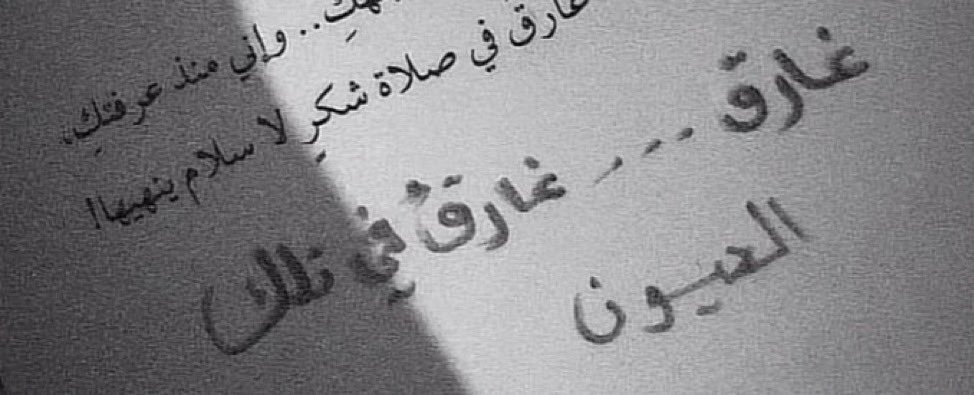 .. وإني منذ عرفتكِ،
غارق في صلاة شكرٍ لا سلام ينهيها!
غارق --- غارقٌ في تلك
العيون